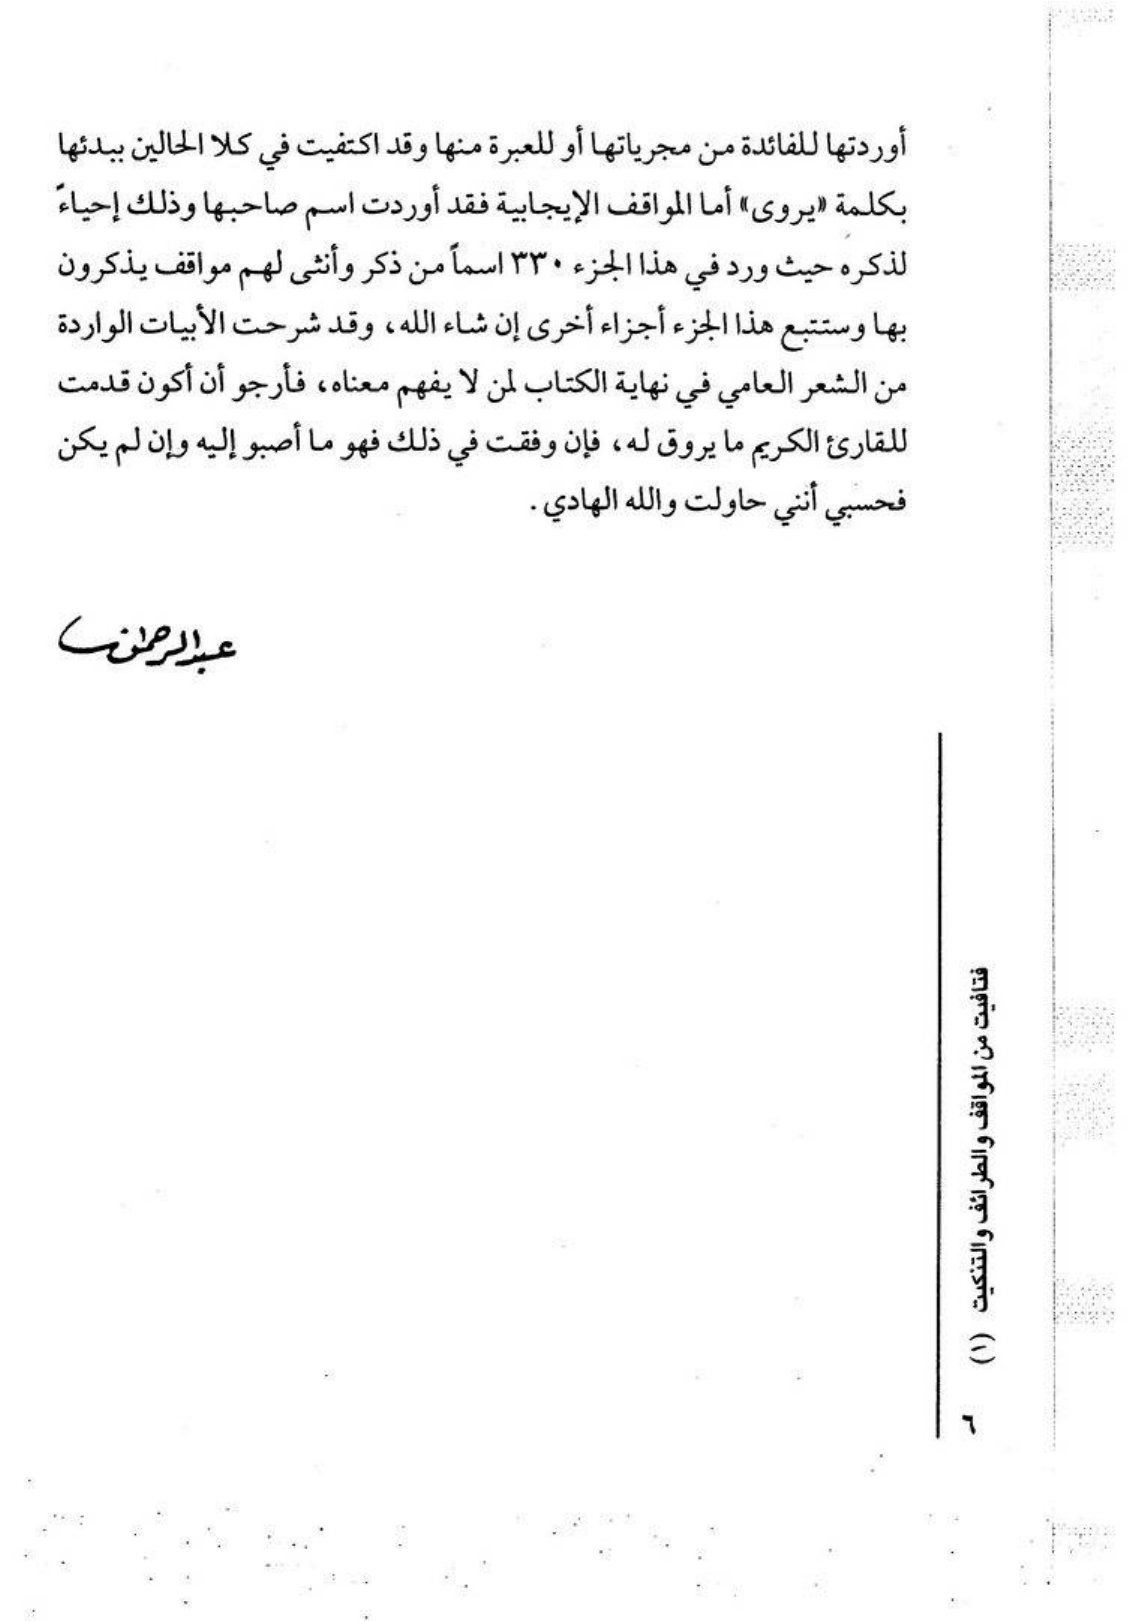 أوردتها للفائدة من مجرياتها أو للعبرة منها وقد اكتفيت في كلا الحالين ببدئها
بكلمة «يروى» أما المواقف الإيجابية فقد أوردت اسم صاحبها وذلك إحياءً
لذكره حيث ورد في هذا الجزء ٣٣٠ اسماً من ذكر وأنثى لهم مواقف يذكرون
بها وستتبع هذا الجزء أجزاء أخرى إن شاء الله، وقد شرحت الأبيات الواردة
من الشعر العامي في نهاية الكتاب لمن لا يفهم معناه، فأرجو أن أكون قدمت
للقارئ الكريم ما يروق له، فإن وفقت في ذلك فهو ما أصبو إليه وإن لم يكن
فحسبي أنني حاولت والله الهادي.
عبدالرحمن
فتافيت من المواقف والطرائف والتنكيت (١)
٦